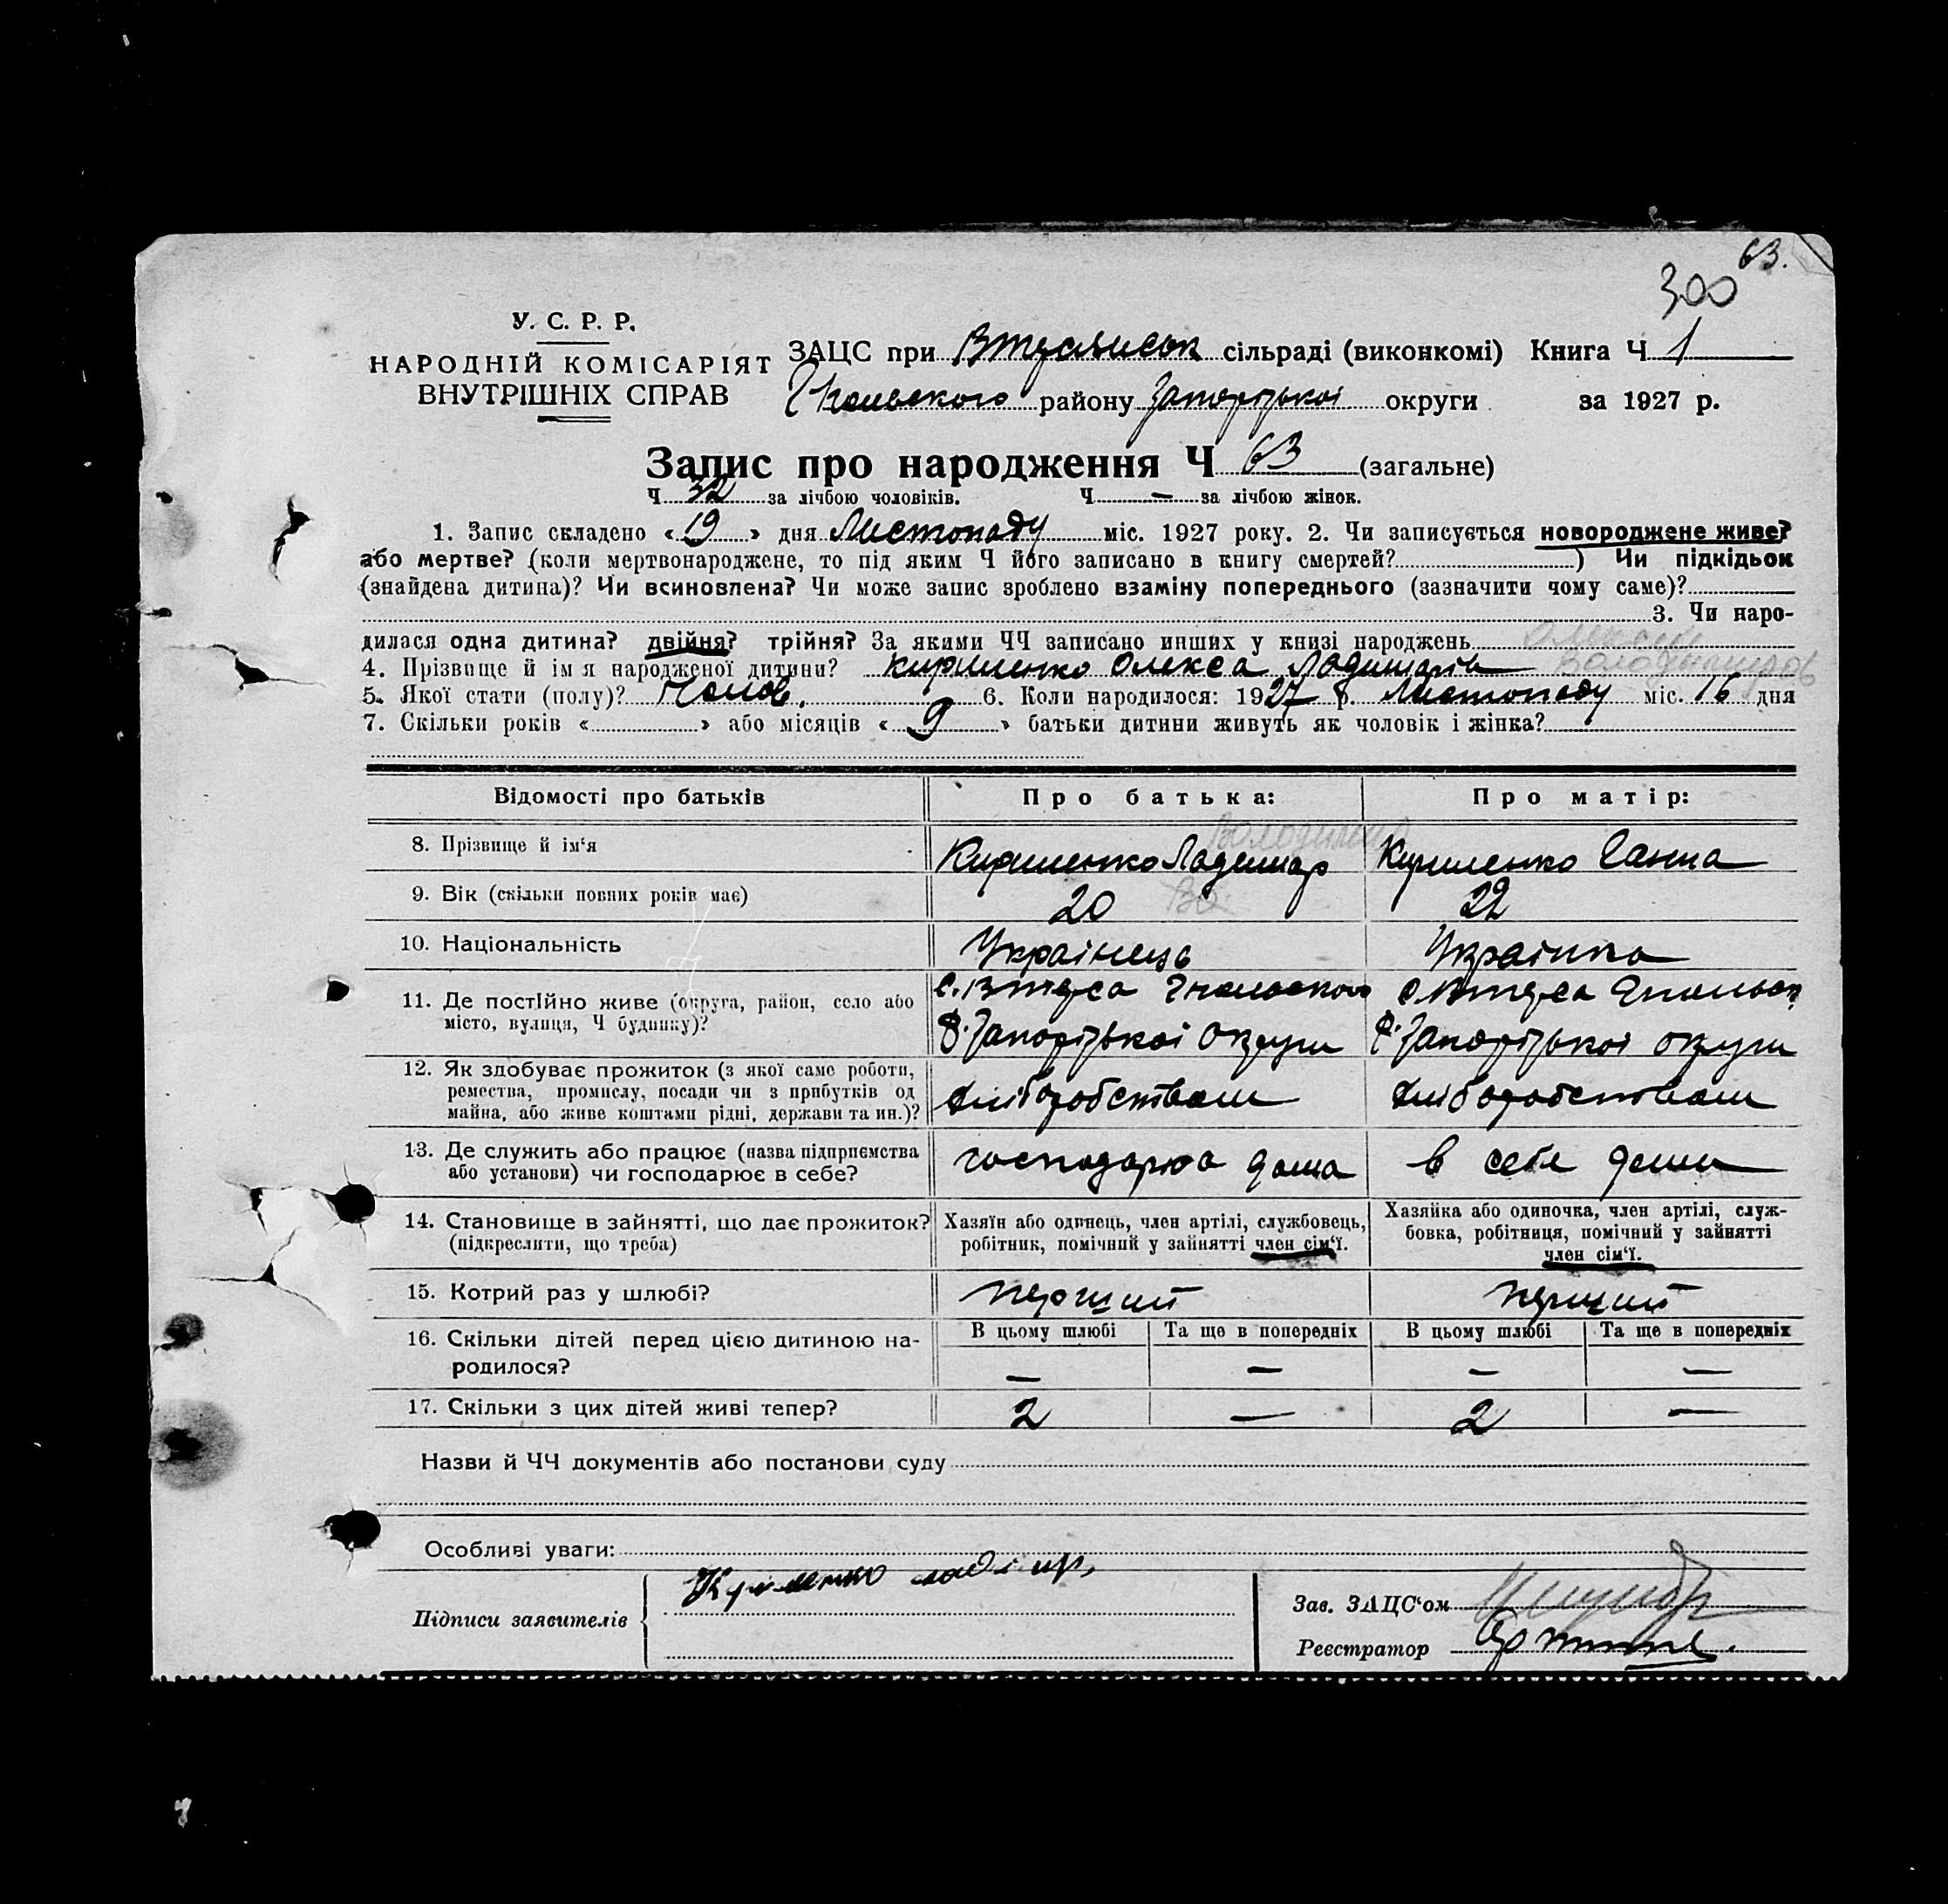 63.
300
У. С. Р. Р.
НАРОДНІЙ КОМІСАРІЯТ
ВНУТРІШНІХ СПРАВ
ЗАЦС при сільраді (виконкомі) Книга Ч 1
району Запорізької округи за 1927 р.
Запис про народження Ч 63 (загальне)
Ч 32 за лічбою чоловіків. Ч — за лічбою жінок.
1. Запис складено « 19 » дня Листопаду міс. 1927 року. 2. Чи записується новороджене живе?
або мертве? (коли мертвонароджене, то під яким Ч його записано в книгу смертей? ) Чи підкідьок
(знайдена дитина)? Чи всиновлена? Чи може запис зроблено взаміну попереднього (зазначити чому саме)?
3. Чи наро-
дилася одна дитина? двійня? трійня? За якими ЧЧ записано инших у книзі народжень
4. Прізвище й імя народженої дитини? Кириленко Олекса
5. Якої стати (полу)? Чолов. 6. Коли народилося: 1927 р. Листопаду міс. 16 дня
7. Скільки років « » або місяців « 9 » батьки дитини живуть як чоловік і жінка?
Відомості про батьків Про батька: Про матір:
8. Прізвище й ім‘я Кириленко Ладимир Кириленко Ганна
9. Вік (скільки повних років має) 20 22
10. Національність Українець Українка
11. Де постІйно живе (округа, район, село або
місто, вулиця, Ч будинку)?
Р. Запорізької округи Р. Запорізької округи
12. Як здобуває прожиток (з якої саме роботи,
ремества, промислу, посади чи з прибутків од
майна, або живе коштами рідні, держави та ин.)?
хліборобством хліборобством
13. Де служить або працює (назва підприємства
або установи) чи господарює в себе?
господарює дома в себе дома
14. Становище в зайнятті, що дає прожиток?
(підкреслити, що треба)
Хазяїн або одинець, член артілі, службовець,
робітник, помічний у зайнятті член сім‘ї.
Хазяйка або одиночка, член артілі, служ-
бовка, робітниця, помічний у зайнятті
член сім‘ї.
15. Котрий раз у шлюбі? перший перший
16. Скільки дітей перед цією дитиною на-
родилося?
В цьому шлюбі Та ще в попередніх В цьому шлюбі Та ще в попередніх
— — — —
17. Скільки з цих дітей живі тепер? 2 — 2 —
Назви й ЧЧ документів або постанови суду
Особливі уваги:
Підписи заявителів
Зав. ЗАЦС‘ом
Реєстратор